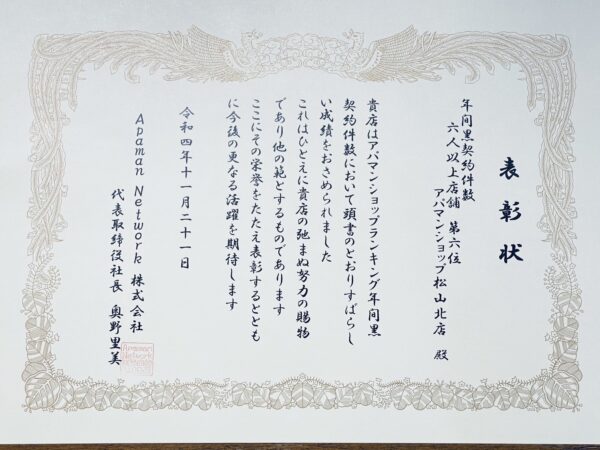 表彰状
年间黒契約件数
六人以上店舗 第六位
アパマンショップ松山北店 殿
貴店はアパマンショップランキング年间黒
契約件数において頭書のとおりすばらし
い成績をおさめられました
これはひとえに貴店の弛まぬ努力の賜物
であり他の範とするものであります
ここにその栄誉をたたえ表彰するととも
に今後の更なる活躍を期待します
令和四年十一月二十一日
Apaman Network 株式会社
代表取締役社長 奥野里美
Apaman
Network